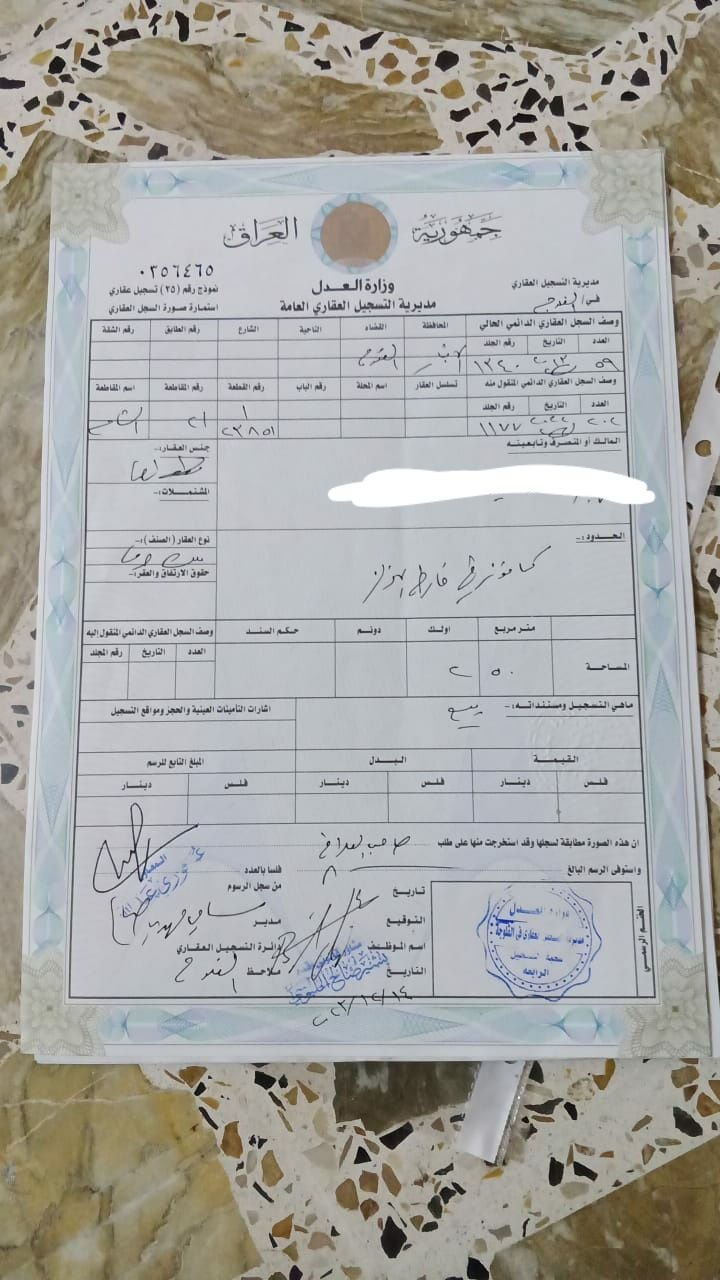 جمهورية العراق
وزارة العدل
مديرية التسجيل العقاري العامة
مديرية التسجيل العقاري
في / الفلوجة
٠٢٥٦٤٦٥
نموذج رقم (٢٥) تسجيل عقاري
استمارة صورة السجل العقاري
وصف السجل العقاري الدائمي الحالي المحافظة القضاء الناحية الشارع رقم الطابق رقم الشقة
العدد التاريخ رقم الجلد
٥٩ ١٣٤٠ الانبار الفلوجة
وصف السجل العقاري الدائمي المنقول منه تسلسل العقار اسم المحلة رقم الباب رقم القطعة رقم المقاطعة اسم المقاطعة
العدد التاريخ رقم الجلد
٢٠٢ ١١٧٧ ١ ٢٣٨٥١ ٢١
المالك أو المتصرف وتابعيته
جنس العقار:-
المشتملات:-
الحدود:-
نوع العقار (الصنف):-
حقوق الارتفاق والعقر:-
المساحة متر مربع اولك دونم حكم السند وصف السجل العقاري الدائمي المنقول اليه
العدد التاريخ رقم المجلد
٥٠ ٢
ماهي التسجيل ومستنداته:- بيع
اشارات التأمينات العينية والحجز ومواقع التسجيل
القيمة البدل المبلغ التابع للرسم
فلس دينار فلس دينار فلس دينار
ان هذه الصورة مطابقة لسجلها وقد استخرجت منها على طلب
واستوفى الرسم البالغ فلسا بالعدد
تاريخ من سجل الرسوم
التوقيع مدير
اسم الموظف دائرة التسجيل العقاري
التاريخ ملاحظ الفلوجة
٢٠٢٣/١٢/١٤
الختم الرسمي
وزارة العدل
مديرية التسجيل العقاري في الفلوجة
شعبة التسجيل
الرابعة